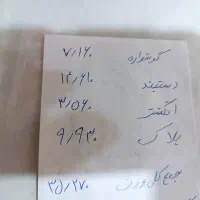 گوشواره ۷/۱۶۰
دستبند ۱۴/۶۱۰
انگشتر ۳/۵۶۰
پلاک ۹/۹۳۰
جمع کل وزن ۳۵/۲۷۰